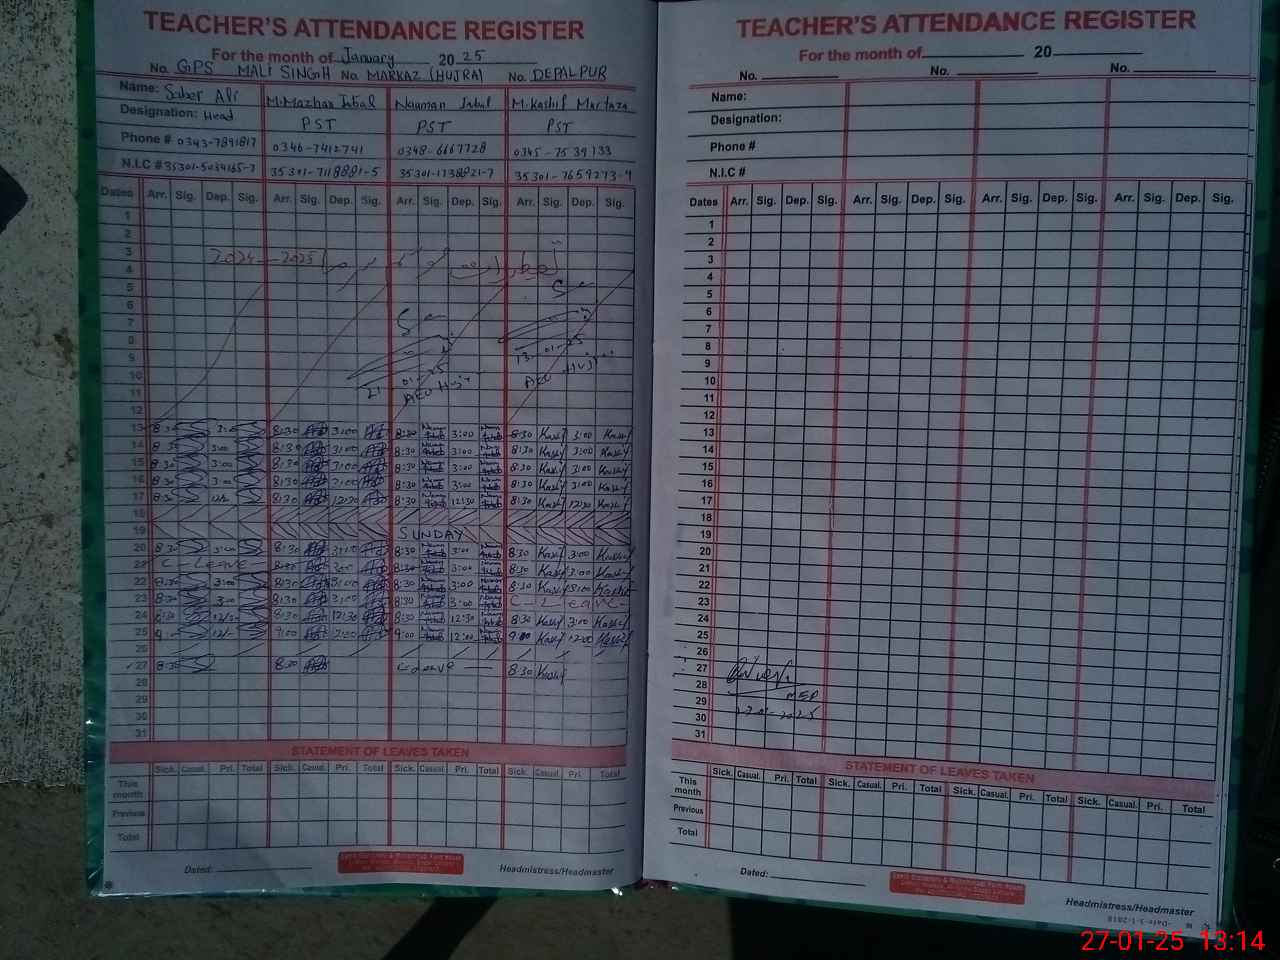 TEACHER'S ATTENDANCE REGISTER
For the month of January 2025
No. GPS MALI SINGH No. MARKAZ (HUJRA) No. DEPALPUR
Name: Saber Ali M.Mazhar Iqbal Nauman Iqbal M.Kashif Murtaza
Designation: Head PST PST PST
Phone # 0343-7891817 0346-7412741 0348-6667728 0345-7539133
N.I.C # 35301-5034165-7 35301-7118881-5 35301-1738821-7 35301-7659273-9
Dates Arr. Sig. Dep. Sig. Arr. Sig. Dep. Sig. Arr. Sig. Dep. Sig. Arr. Sig. Dep. Sig.
1
2
3
2024-2025
4
5
6
7
8
13-01-25
9
10
21-01-25
AEO Hujra
11
AEO Hujra
12
13 8:30 3:00 8:30 3:00 8:30 3:00 8:30 Kashif 3:00 Kashif
14 8:30 3:00 8:30 3:00 8:30 3:00 8:30 Kashif 3:00 Kashif
15 8:30 3:00 8:30 3:00 8:30 3:00 8:30 Kashif 3:00 Kashif
16 8:30 3:00 8:30 3:00 8:30 3:00 8:30 Kashif 3:00 Kashif
17 8:30 8:30 12:30 8:30 12:30 8:30 Kashif 12:30 Kashif
18
19 SUNDAY
20 8:30 3:00 8:30 3:00 8:30 3:00 8:30 Kashif 3:00 Kashif
21 C - Leave - 8:30 3:00 8:30 3:00 8:30 Kashif 3:00 Kashif
22 8:30 3:00 8:30 3:00 8:30 3:00 8:30 Kashif 3:00 Kashif
23 8:30 3:00 8:30 3:00 8:30 3:00 C - Leave -
24 8:30 8:30 12:30 8:30 12:30 8:30 Kashif 3:00 Kashif
25 9:00 9:00 12:00 9:00 12:00 9:00 Kashif 12:00 Kashif
26
27 8:30 8:30 Leave 8:30 Kashif
28
29
30
31
STATEMENT OF LEAVES TAKEN
Sick. Casual. Pri. Total Sick. Casual. Pri. Total Sick. Casual. Pri. Total Sick. Casual. Pri. Total
This month
Previous
Total
Dated:
Headmistress/Headmaster
TEACHER'S ATTENDANCE REGISTER
For the month of 20
No. No. No.
Name:
Designation:
Phone #
N.I.C #
Dates Arr. Sig. Dep. Sig. Arr. Sig. Dep. Sig. Arr. Sig. Dep. Sig. Arr. Sig. Dep. Sig.
1
2
3
4
5
6
7
8
9
10
11
12
13
14
15
16
17
18
19
20
21
22
23
24
25
26
27
28
MEA
29
30
31
STATEMENT OF LEAVES TAKEN
Sick. Casual. Pri. Total Sick. Casual. Pri. Total Sick. Casual. Pri. Total Sick. Casual. Pri. Total
This month
Previous
Total
Dated:
Headmistress/Headmaster
27-01-25 13:14